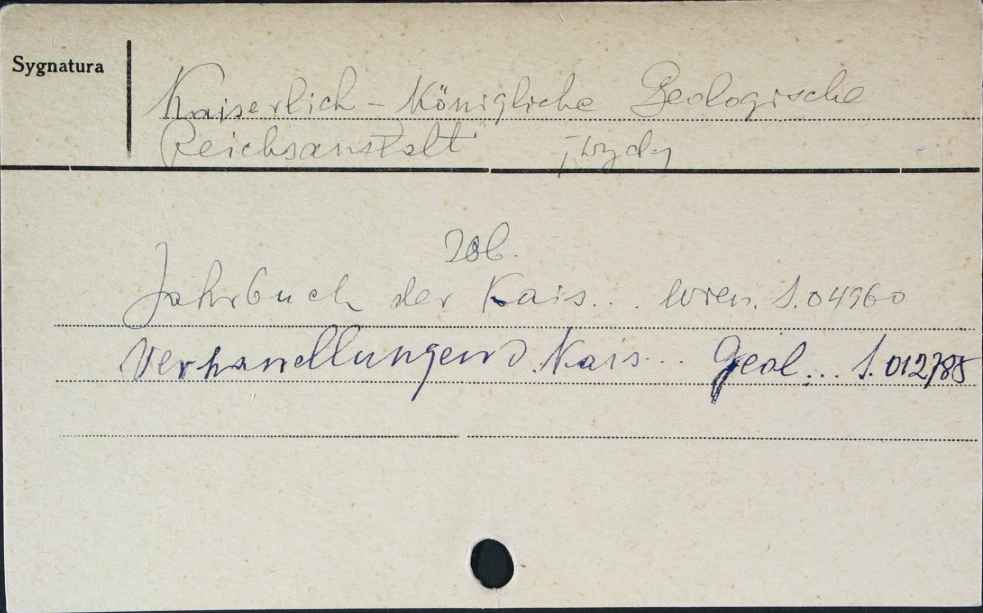 Sygnatura
Kaiserlich - Königliche Geologische
Reichsanstalt
Zob.
Jahrbuch der Kais... Wien. S.04960
Verhandlungen d. Kais... Geol... S.012785